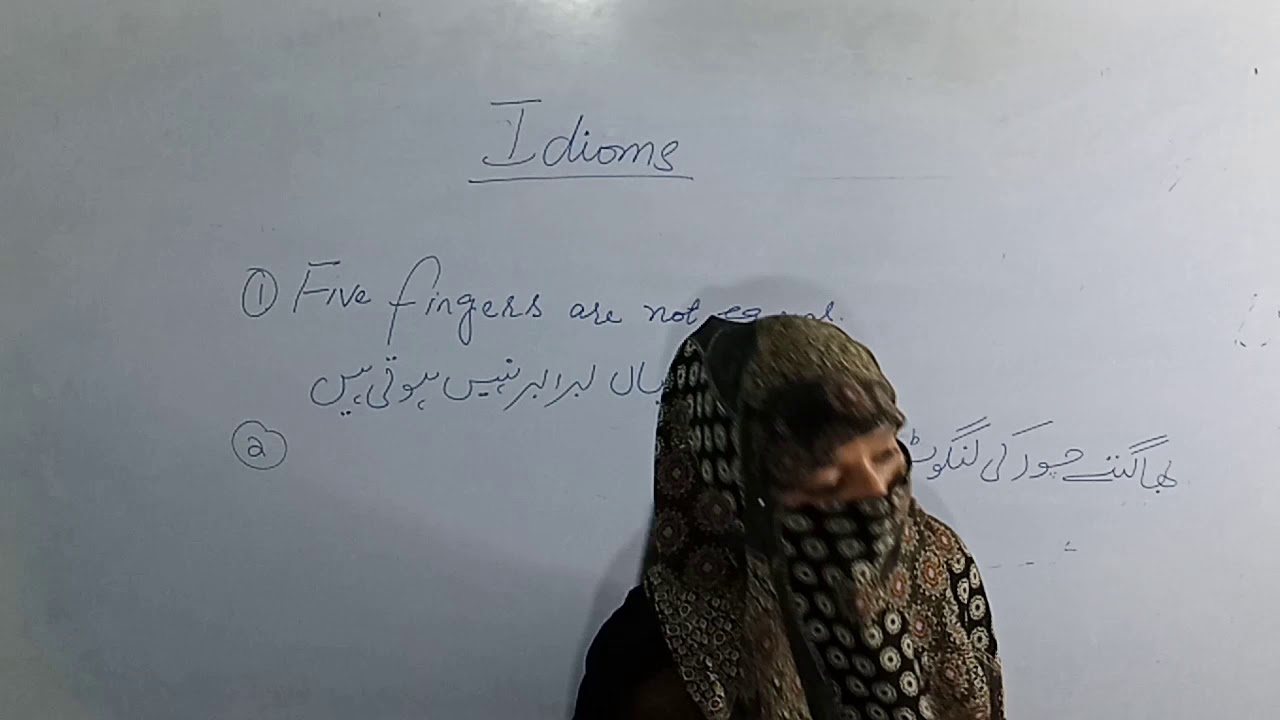 Idioms
① Five fingers are not
برابر نہیں ہوتی ہیں
② بھاگتے چور کی